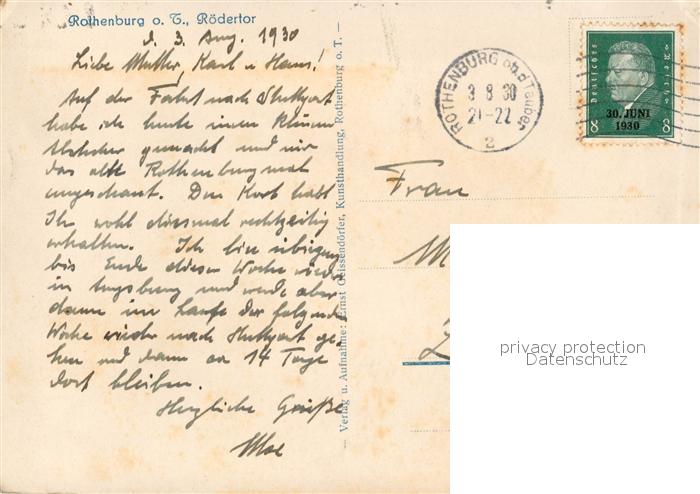 Rothenburg o. T., Rödertor
d. 3. Aug. 1930
Liebe Mutter, Karl u Hans!
Auf der Fahrt nach Stuttgart
habe ich heute einen kleinen
Abstecher gemacht und mir
das alte Rothenburg mal
angeschaut. Den Korb habt
Ihr wohl diesmal rechtzeitig
erhalten. Ich bin übrigens
bis Ende dieser Woche wieder
in Augsburg und werde aber
dann im Laufe der folgenden
Woche wieder nach Stuttgart ge-
hen und dann ca 14 Tage
dort bleiben.
Herzliche Grüße
Verlag u. Aufnahme: Ernst Geissendörfer, Kunsthandlung, Rothenburg o. T. —
ROTHENBURG ob.d.Tauber
3 8 30
21-22
2
Deutsches Reich
30. JUNI
1930
8 8
Frau
privacy protection
Datenschutz